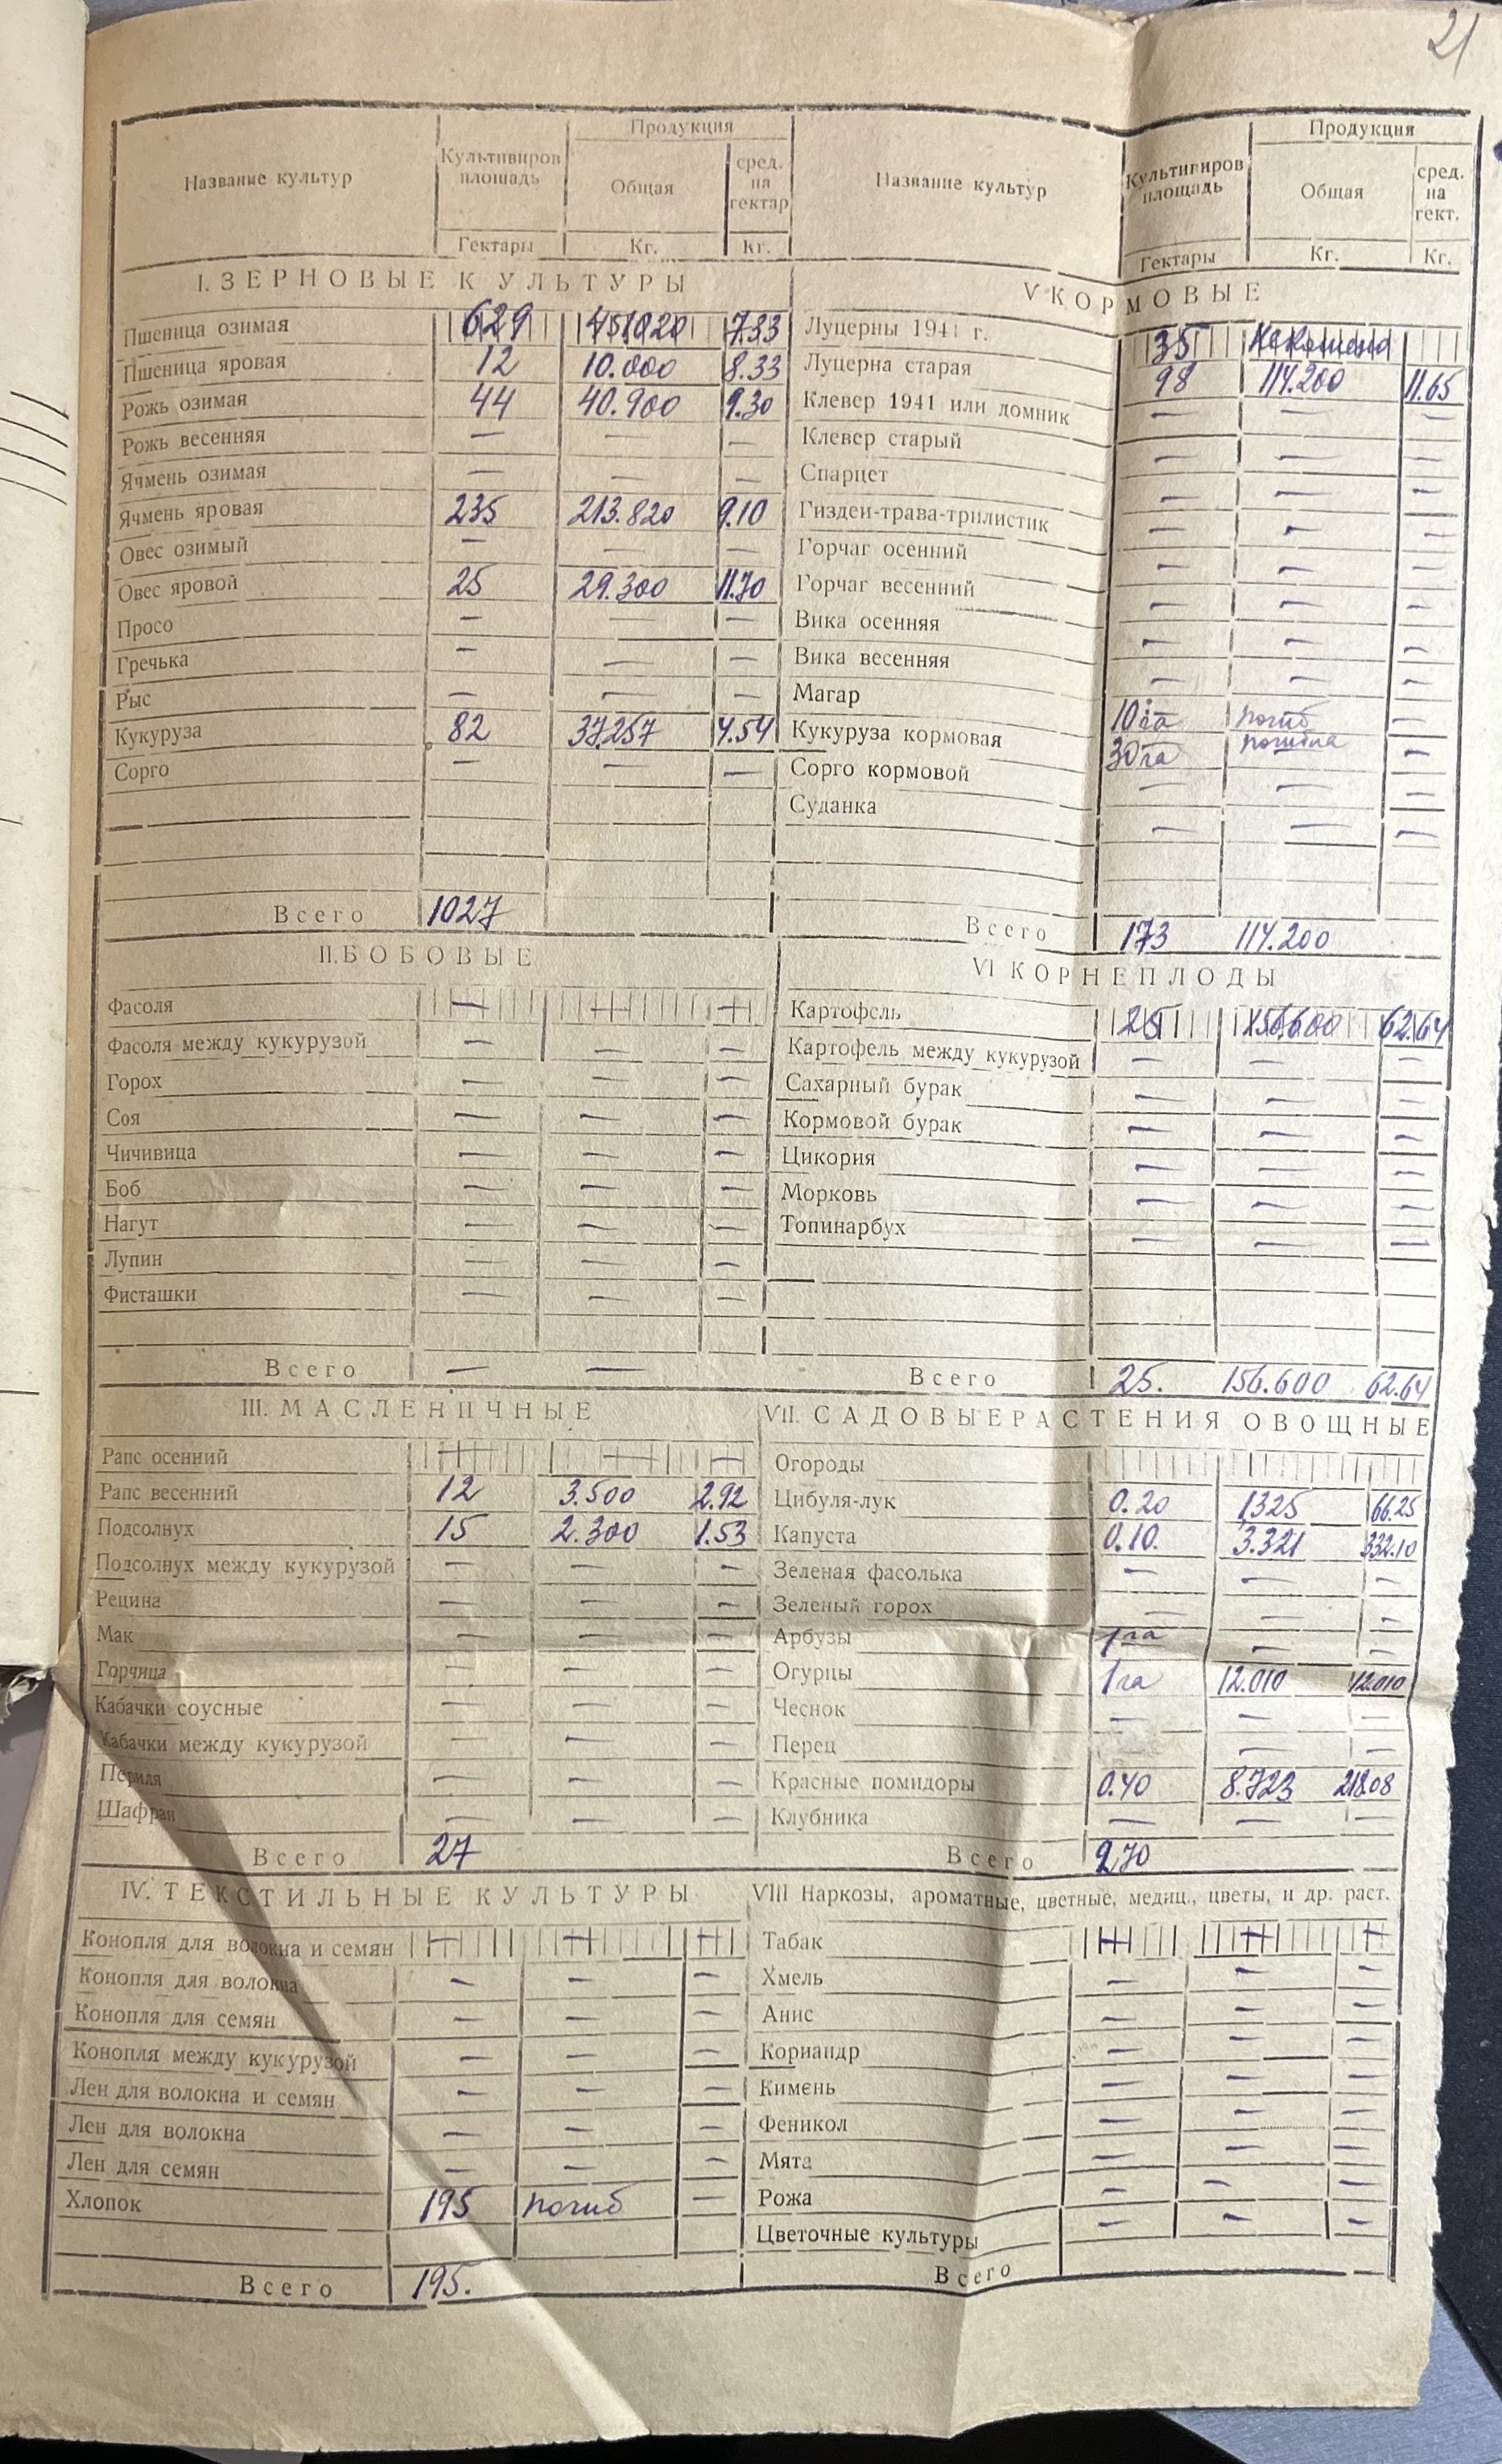 21
Название культур | Культивиров площадь | Продукция
Общая | сред. на гектар
Гектары | Кг. | Кг.
I. ЗЕРНОВЫЕ КУЛЬТУРЫ
Пшеница озимая 629 451020 7.33
Пшеница яровая 12 10.000 8.33
Рожь озимая 44 40.900 9.30
Рожь весенняя — — —
Ячмень озимая — — —
Ячмень яровая 235 213.820 9.10
Овес озимый — — —
Овес яровой 25 29.300 11.70
Просо — — —
Гречька — — —
Рыс — — —
Кукуруза 82 37257 4.54
Сорго — — —
Всего 1027
II. БОБОВЫЕ
Фасоля — — —
Фасоля между кукурузой — — —
Горох — — —
Соя — — —
Чичивица — — —
Боб — — —
Нагут — — —
Лупин — — —
Фисташки — — —
Всего — —
III. МАСЛЕНИЧНЫЕ
Рапс осенний — — —
Рапс весенний 12 3.500 2.92
Подсолнух 15 2.300 1.53
Подсолнух между кукурузой — — —
Рецина — — —
Мак — — —
Горчица — — —
Кабачки соусные — — —
Кабачки между кукурузой — — —
Периля — — —
Шафран — — —
Всего 27
IV. ТЕКСТИЛЬНЫЕ КУЛЬТУРЫ
Конопля для волокна и семян — — —
Конопля для волокна — — —
Конопля для семян — — —
Конопля между кукурузой — — —
Лен для волокна и семян — — —
Лен для волокна — — —
Лен для семян — — —
Хлопок 195 погиб —
Всего 195.
Название культур | Культивиров площадь | Продукция
Общая | сред. на гект.
Гектары | Кг. | Кг.
V КОРМОВЫЕ
Луцерны 1941 г. 35 Некошено
Луцерна старая 98 114.200 11.65
Клевер 1941 или домник — — —
Клевер старый — — —
Спарцет — — —
Гиздеи-трава-трилистик — — —
Горчаг осенний — — —
Горчаг весенний — — —
Вика осенняя — — —
Вика весенняя — — —
Магар 10 га погиб —
Кукуруза кормовая 30 га погибла —
Сорго кормовой — — —
Суданка — — —
Всего 173 114.200
VI КОРНЕПЛОДЫ
Картофель 25 156.600 62.64
Картофель между кукурузой — — —
Сахарный бурак — — —
Кормовой бурак — — —
Цикория — — —
Морковь — — —
Топинарбух — — —
Всего 25. 156.600 62.64
VII. САДОВЫЕ РАСТЕНИЯ ОВОЩНЫЕ
Огороды
Цибуля-лук 0.20 1325 66.25
Капуста 0.10. 3.321 332.10
Зеленая фасолька — — —
Зеленый горох — — —
Арбузы 1 га — —
Огурцы 1 га 12.010 12.010
Чеснок — — —
Перец — —
Красные помидоры 0.40 8.723 218.08
Клубника — — —
Всего 2,70
VIII Наркозы, ароматные, цветные, медиц., цветы, и др. раст.
Табак — — —
Хмель — — —
Анис — — —
Кориандр — — —
Кимень — — —
Феникол — — —
Мята — — —
Рожа — — —
Цветочные культуры — — —
Всего